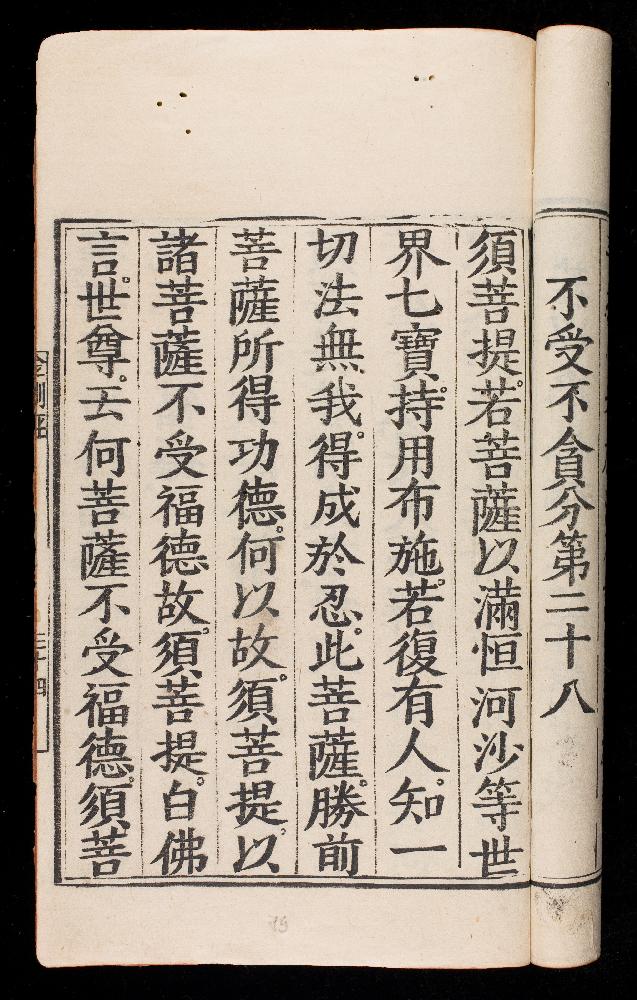 不受不貪分第二十八
須菩提。若菩薩以滿恒河沙等世
界七寶。持用布施。若復有人。知一
切法無我。得成於忍。此菩薩。勝前
菩薩所得功德。何以故。須菩提。以
諸菩薩不受福德故。須菩提。白佛
言。世尊。云何菩薩不受福德。須菩
金剛經
三十四